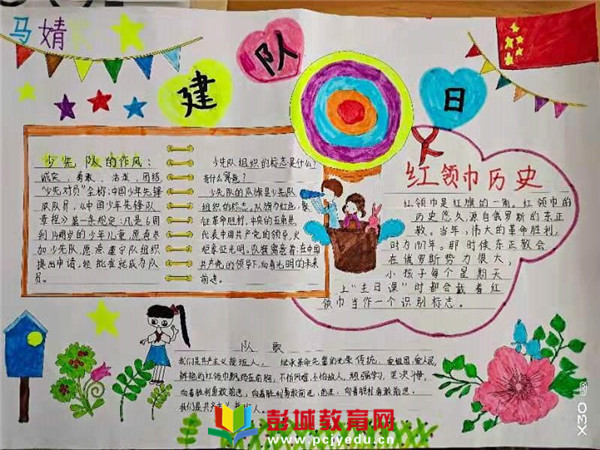 马婧
建队日
少先队的作风:
诚实、勇敢、活泼、团结
"少先队员"全称:中国少年先锋
队队员。《中国少年先锋队
章程》第一条规定:凡是6周岁
到14周岁的少年儿童,愿意参
加少先队,愿意遵守队组织
提出申请,经批准就成为队
员。
少先队组织的标志是什么?
有什么寓意?
少先队的队旗是少先队
组织的标志。队旗为红色,象
征革命胜利,中央的五角星
代表中国共产党的领导,火
炬象征光明。队旗寓意着:在中国
共产党的领导下,向着光明的未来
前进。
红领巾历史
红领巾是红旗的一角,红领巾的
历史悠久,源自俄罗斯的东正
教。当年,伟大的革命胜利,
时为1917年。那时候东正教会
在俄罗斯势力很大,
小孩子每个星期天
上"主日课"时都会戴着红
领巾当作一个识别标志。
队歌
我们是共产主义接班人,继承革命先辈的光荣传统,爱祖国,爱人民,
鲜艳的红领巾飘扬在前胸,不怕困难,不怕敌人,顽强学习,坚决斗争,
向着胜利勇敢前进,向着胜利勇敢前进,前进,向着胜利勇敢前进,
我们是共产主义接班人。
彭城教育网
www.pcjyedu.cn
X30